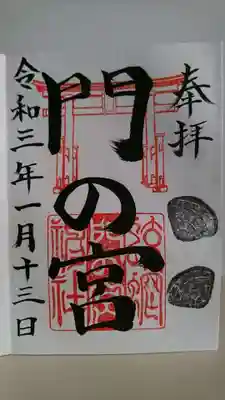 奉拝
門の宮
令和三年一月十三日